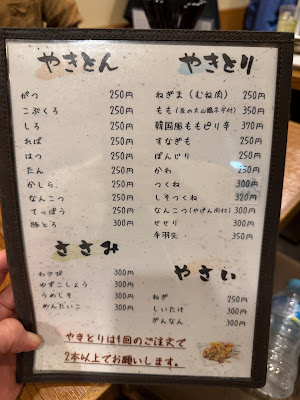 やきとん
がつ 250円
こぶくろ 250円
しろ 250円
ればー 250円
はつ 250円
たん 250円
かしら 250円
なんこつ 250円
てっぽう 250円
豚とろ 300円
ささみ
わさび 300円
ゆずこしょう 300円
うめしそ 300円
めんたいこ 300円
やきとり
ねぎま(むね肉) 250円
もも 350円
韓国風ももピリ辛 370円
すなぎも 250円
ぼんじり 250円
かわ 250円
つくね 300円
しそつくね 320円
なんこつ(やげん肉付) 300円
せせり 300円
手羽先 350円
やさい
ねぎ 250円
しいたけ 300円
ぎんなん 300円
やきとりは1回のご注文で
2本以上でお願いします。